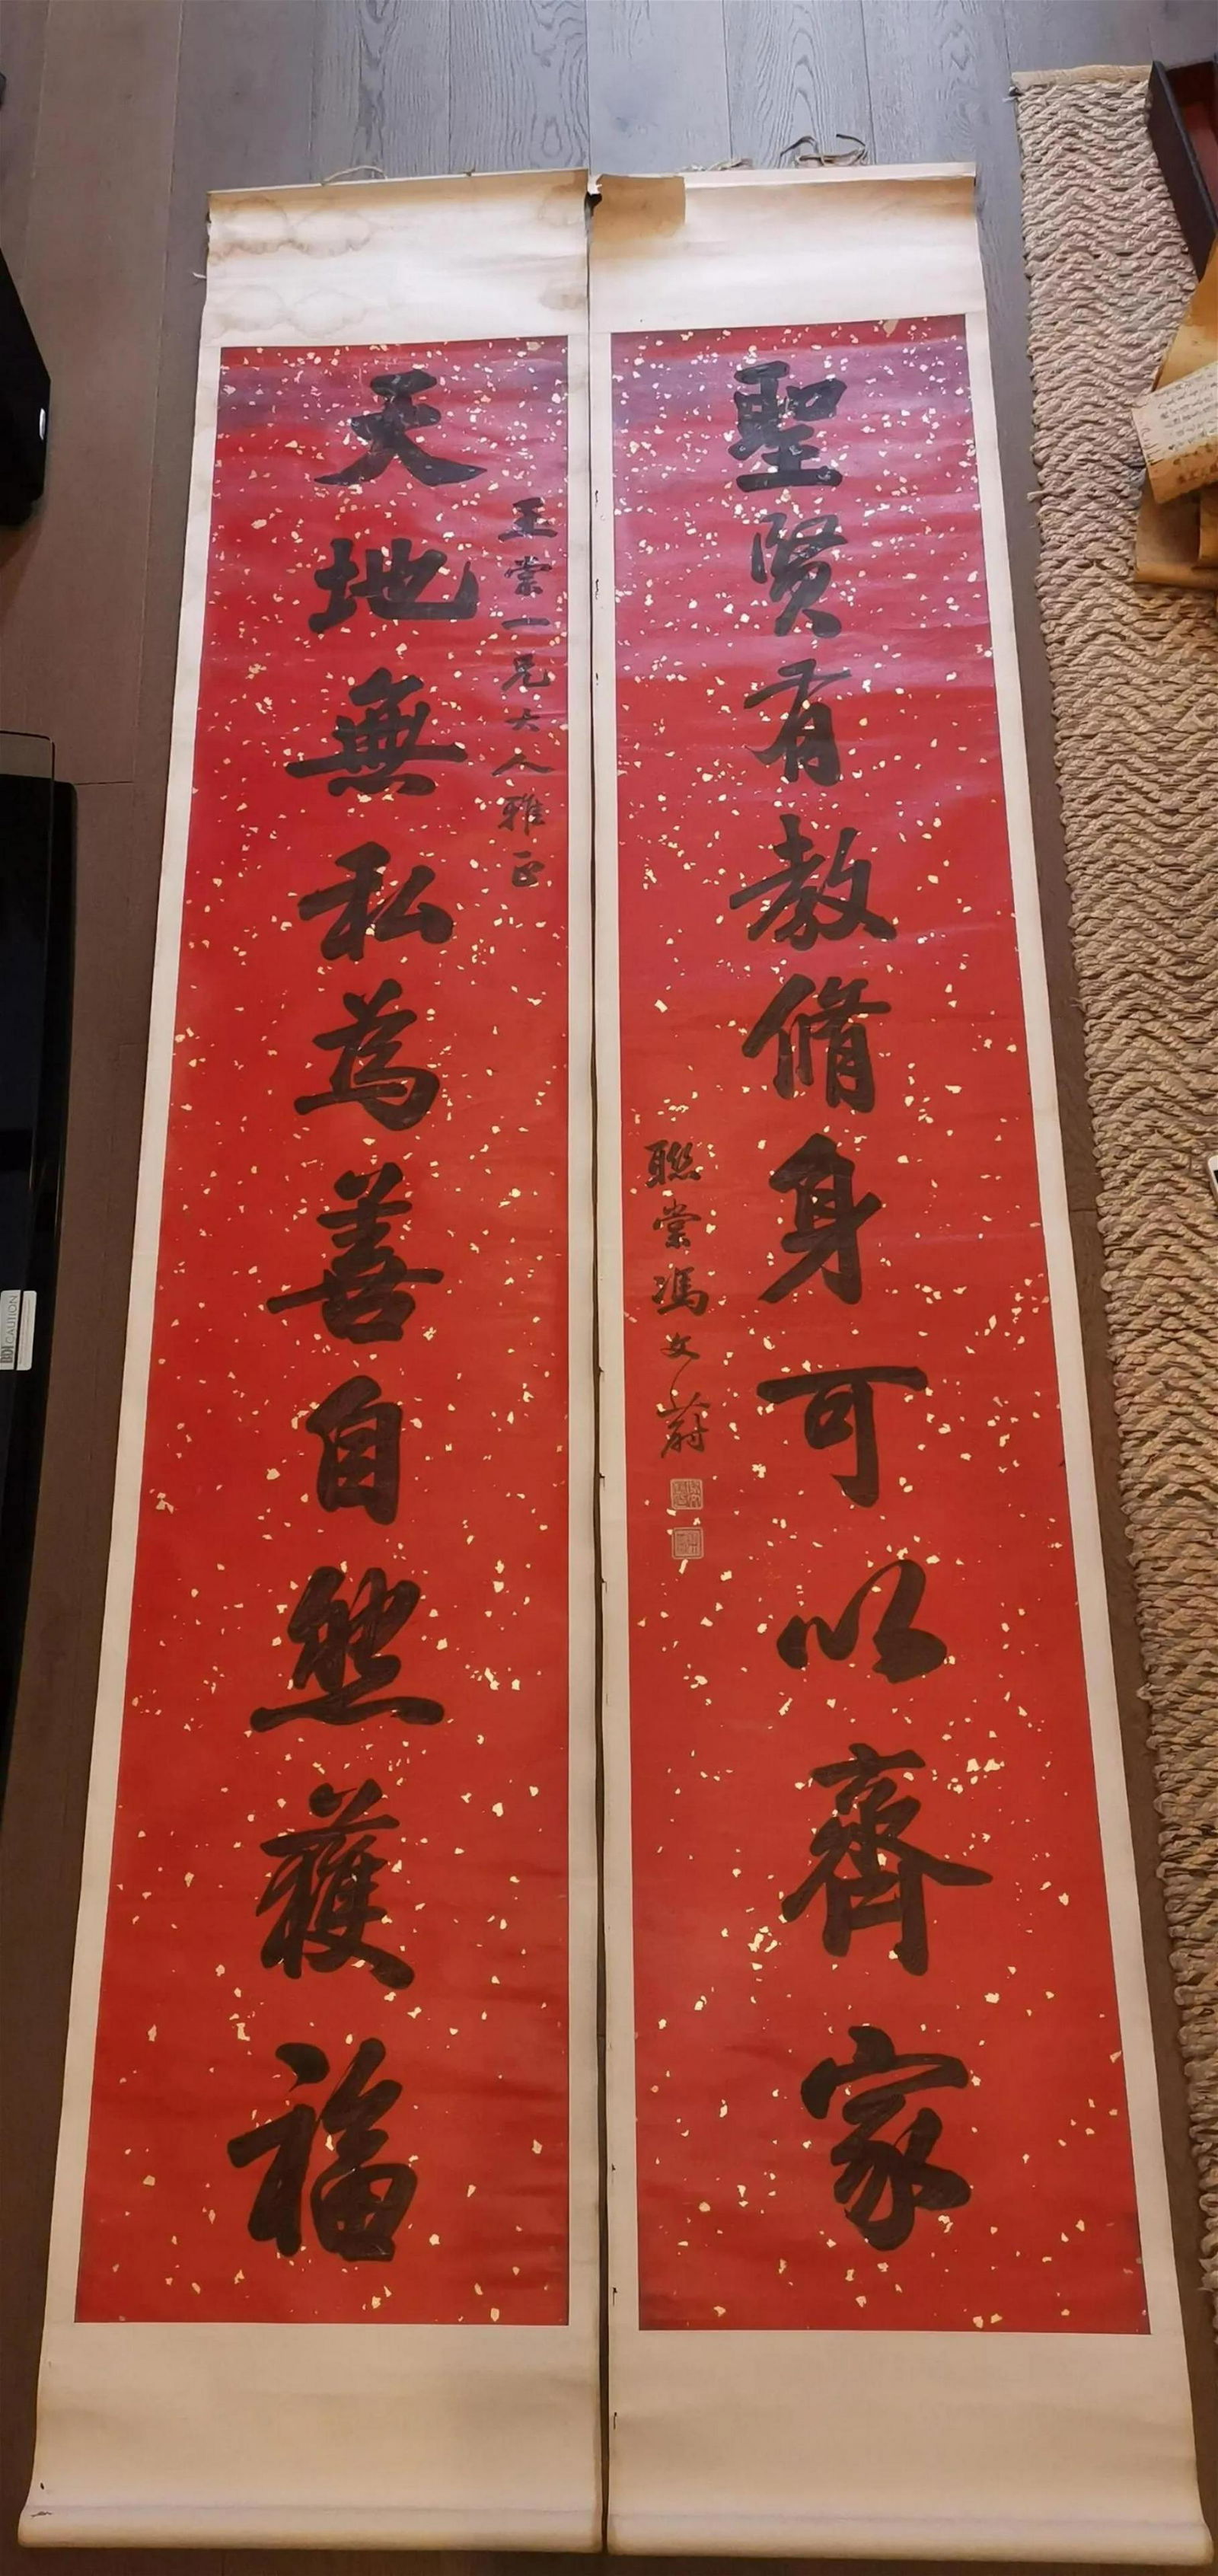 天地無私為善自然獲福
玉棠一兄大人雅正
聖賢有教脩身可以齊家
聯棠馮文蔚
CAUTION